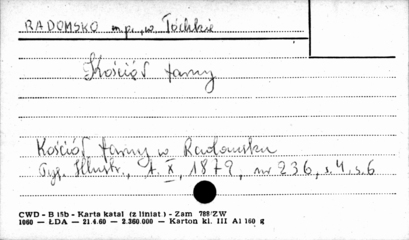 RADOMSKO mp., w. Łódzkie
Kościół farny
Kościół farny w Radomsku
Tyg. Illustr., t. X, 1872, nr 236, s. 4, s. 6
CWD - B 15b - Karta katal (z liniat.) - Zam 788/ZW
1060 — ŁDA — 21.4.60 — 2.360.000 — Karton kl. III A1 160 g